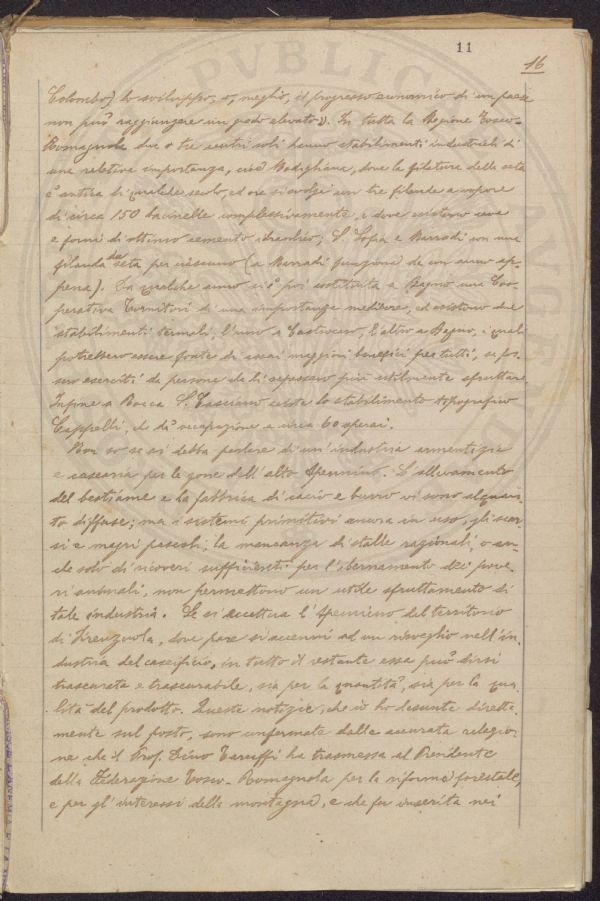 11
16
Colombo) lo sviluppo, o, meglio, il progresso economico di un paese
non può raggiungere un grado elevato). In tutta la Regione Tosco-
Romagnola due o tre centri soli hanno stabilimenti industriali di
una relativa importanza, cioè Modigliana, dove la filatura della seta
è antica di qualche secolo, ed ora si svolge in tre filande a vapore
di circa 150 bacinelle complessivamente, e dove esistono cave
e forni di ottimo cemento idraulico; S. Sofia e Marradi con una
filanda da seta per ciascuno (a Marradi funziona da un anno ap-
pena). Da qualche anno si è poi costituita a Bagno una Coo-
perativa Tornitori di una importanza mediocre, ed esistono due
stabilimenti termali, l'uno a Castrocaro, l'altro a Bagno, i quali
potrebbero essere fonte di assai maggiori benefici per tutti, se fos-
sero eserciti da persone che li sapessero più utilmente sfruttare.
Infine a Rocca S. Casciano esiste lo stabilimento tipografico
Cappelli, che dà occupazione a circa 60 operai.
Non so se si debba parlare di un'industria armentizia
e casearia per le zone dell'alto Apennino. L'allevamento
del bestiame e la fabbrica di cacio e burro vi sono alquan-
to diffuse; ma i sistemi primitivi ancora in uso, gli scar-
si e magri pascoli, la mancanza di stalle razionali, o an-
che solo di ricoveri sufficienti per l'ibernamento dei pove-
ri animali, non permettono un utile sfruttamento di
tale industria. Se si eccettua l'Apennino del territorio
di Firenzuola, dove pare si accenni ad un risveglio nell'in-
dustria del caseificio, in tutto il restante essa può dirsi
trascurata e trascurabile, sia per la quantità, sia per la qua-
lità del prodotto. Queste notizie, che io ho desunte diretta-
mente sul posto, sono confermate dalla accurata relazio-
ne che il Prof. Dino Taruffi ha trasmessa al Presidente
della Federazione Tosco-Romagnola per la riforma forestale,
e per gl'interessi della montagna, e che fu inserita nei